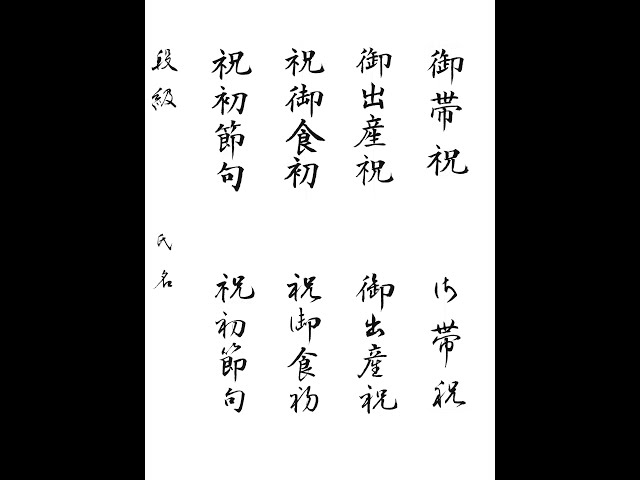 御帯祝
御出産祝
祝御食初
祝初節句
段級
御帯祝
御出産祝
祝御食初
祝初節句
氏名